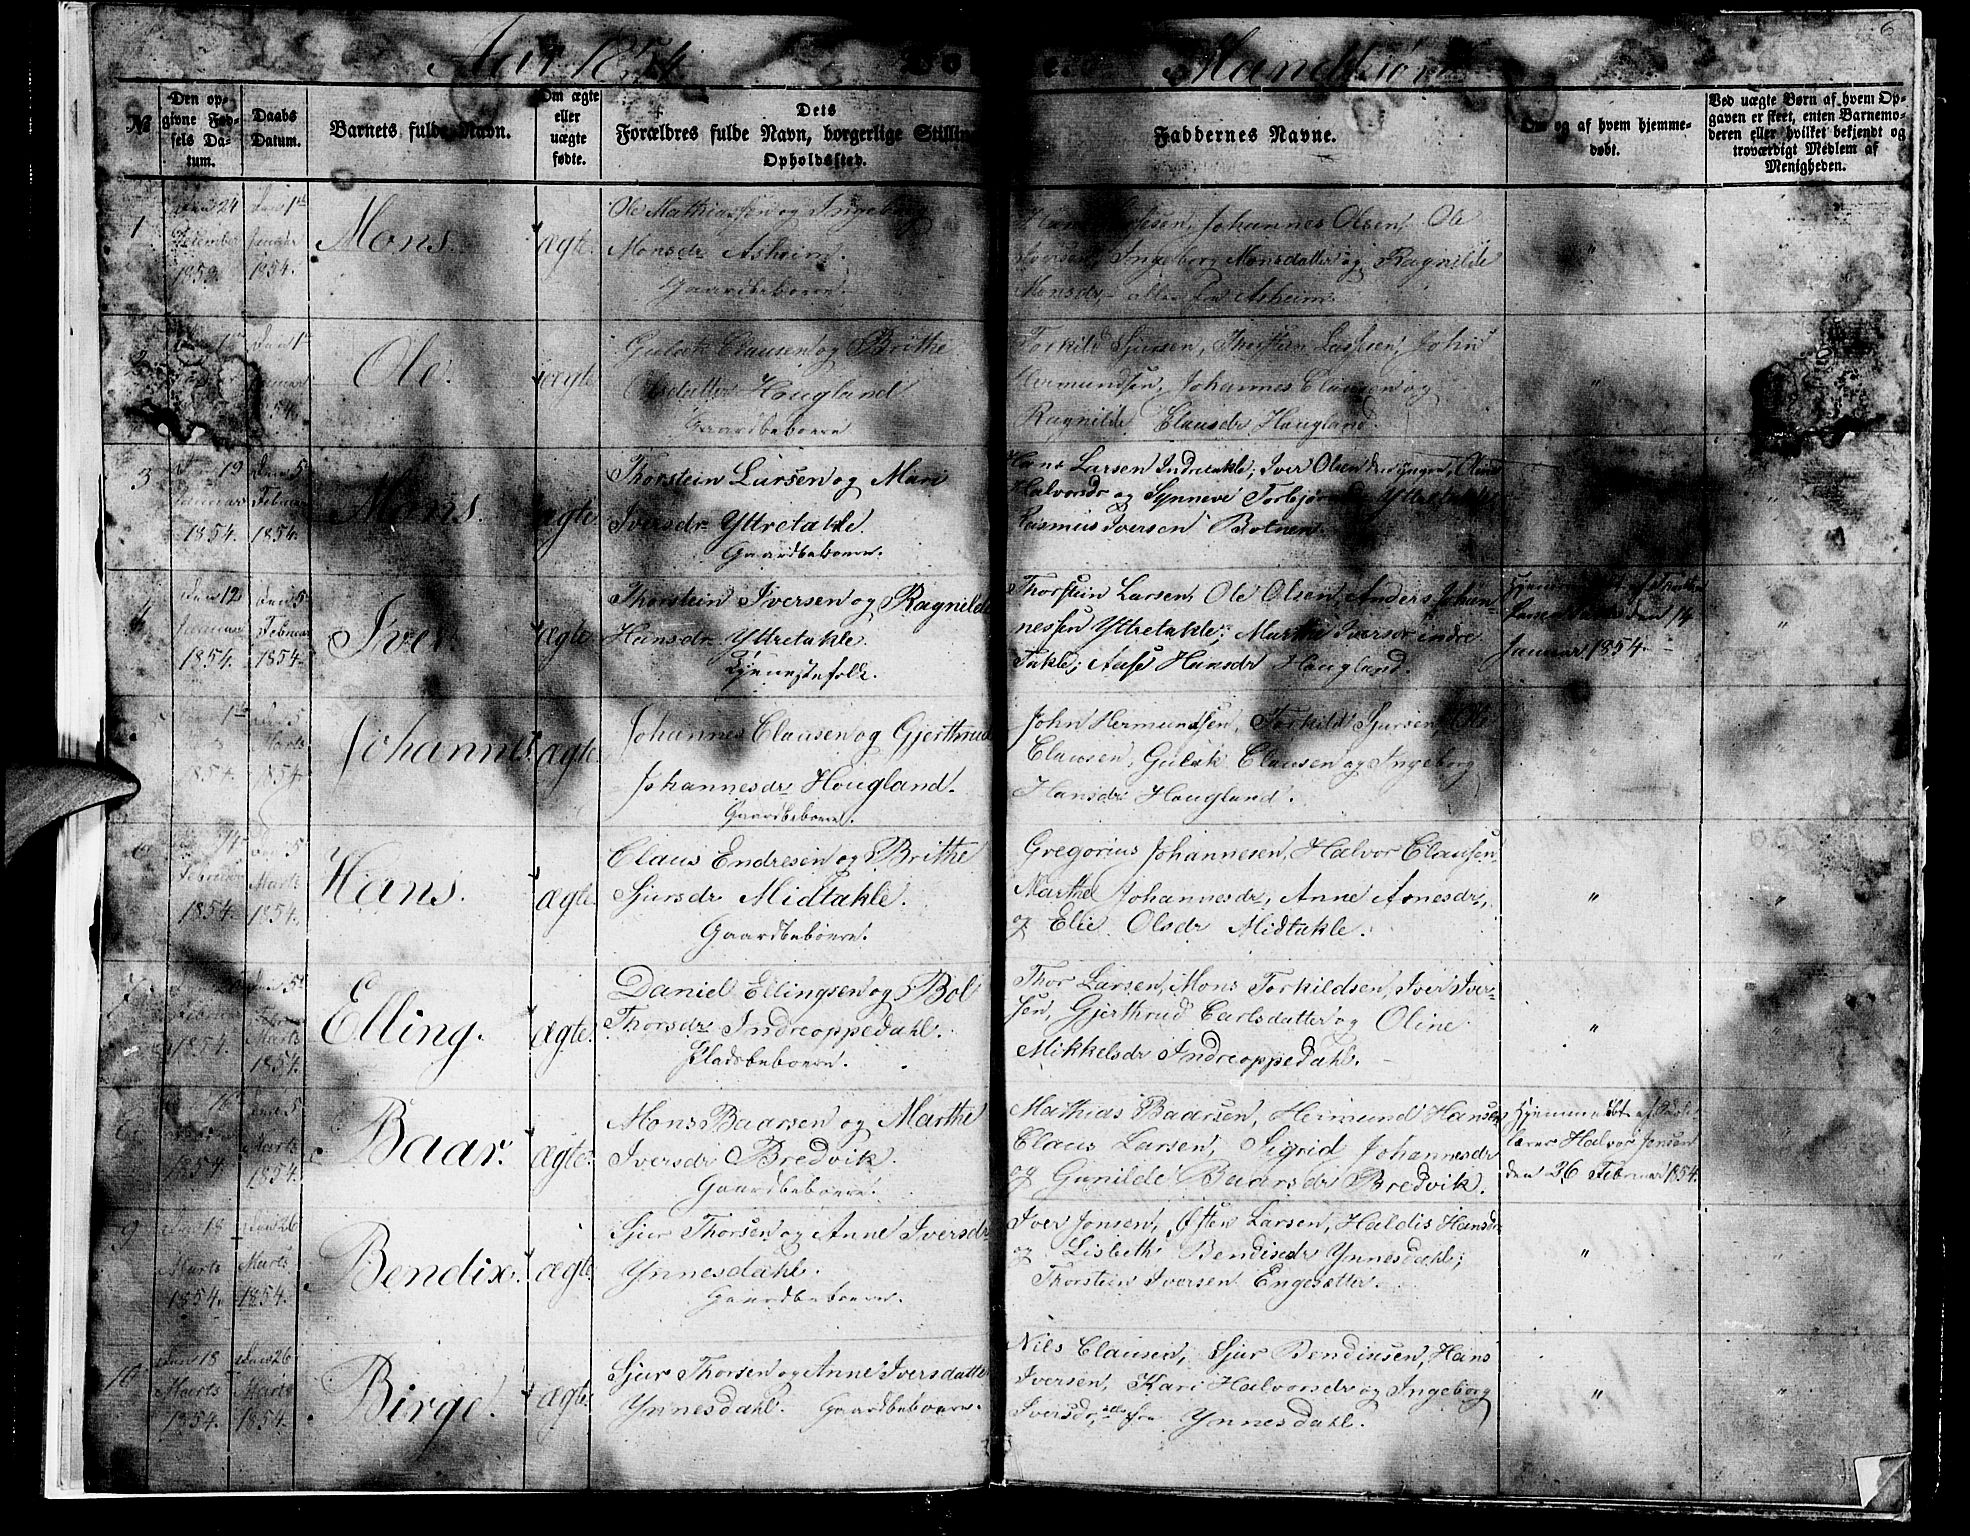 6
Aar 1854.
№
Den opgivne Fødsels Datum.
Daabs Datum.
Barnets fulde Navn.
Om ægte eller uægte fødte.
Dets Forældres fulde Navn, borgerlige Stilling Opholdssted.
Faddernes Navne.
Om og af hvem hjemmedøbt.
Ved uægte Børn af hvem Opgaven er skeet, enten Barnemoderen eller hvilket bekjendt og troværdigt Medlem af Menigheden.
1
24
December
1853.
1854.
Mons.
ægte.
Ole Mathiassen og Ingeborg
Monsdr Asheim.
Gaardbeboere.
Johannes Olsen, Ole
Iversen, Ingeborg Monsdatter og Ragnilde
Monsdr alle fra Asheim.
"
2
Ole.
ægte
Gulak Clausen og Brithe
Olsdatter Hougland
Gaardbeboere
Torkild Sjursen, Thorstein Larsen, John
Hermundsen, Johannes Clausen og
Ragnilde Clausdr Hougland.
"
3
19
Januar
1854.
den 5
Februar
1854.
Mons.
ægte
Thorstein Larsen og Mari
Iversdr Yttretakle.
Gaardbeboere.
Hans Larsen Indretakle; Iver Olsen den yngre, Oline
Halvorsdr og Synneve Torbjørnsdr Yttretakle
Rasmus Iversen Botnen
"
4
den 12
Januar
1854.
den 5
Februar
1854.
Iver.
ægte
Thorstein Iversen og Ragnilde
Hansdr Yttretakle.
Tjenestefolk.
Thorstein Larsen, Ole Olsen, Anders Johan-
nessen Yttretakle; Marthe Iversdr indre
Takle; Aase Hansdr Hougland.
den 14
Januar 1854.
"
1854.
den 5
Marts
1854.
Johannes
ægte
Johannes Clausen og Gjerthrud
Johannesdr Hougland.
Gaardbeboere.
John Hermundsen, Torkild Sjursen, Ole
Clausen, Gulak Clausen og Ingeborg
Hansdr Hougland.
"
6
Februar
1854.
den 5
Marts
1854.
Hans.
ægte.
Claus Endresen og Brithe
Sjursdr Midtakle.
Gaardbeboere.
Gregorius Johannesen, Halvor Clausen,
Marthe Johannesdr, Anne Arnesdr,
og Elie Olsdr Midtakle.
"
"
7
Februar
1854.
den 5
Marts
1854.
Elling.
ægte.
Daniel Ellingsen og Bol
Thorsdr Indreoppedahl.
Pladsbeboere.
Thor Larsen, Mons Torkildsen, Iver Iver-
sen, Gjerthrud Carlsdatter og Oline
Mikkelsdr Indreoppedahl.
"
"
8
1854.
den 5
Marts
1854.
Baar.
ægte.
Mons Baarsen og Marthe
Iversdr Bredvik.
Gaardbeboere.
Mathias Baarsen, Hermund Hansen
Claus Larsen, Sigrid Johannesdr
og Gunilde Baarsdr Bredvik.
Hjemmedøbt af Skole-
lærer Halvor Jensen
den 26 Februar 1854.
9
Den 18
Marts
1854.
den 26
Marts
1854.
Bendix.
ægte.
Sjur Thorsen og Anne Iversdr
Ynnesdahl.
Gaardbeboere.
Iver Jonsen, Østen Larsen, Haldis Hansdr
og Lisbeth Bendixdr Ynnesdahl;
Thorstein Iversen Engesætter.
"
"
10
den 18
Marts
1854.
den 26
Marts
1854.
Birge.
ægte.
Sjur Thorsen og Anne Iversdatter
Ynnesdahl. Gaardbeboere.
Nils Clausen, Sjur Bendixsen, Hans
Iversen, Kari Halvorsdr og Ingeborg
Iversdr, alle fra Ynnesdahl.
"
"